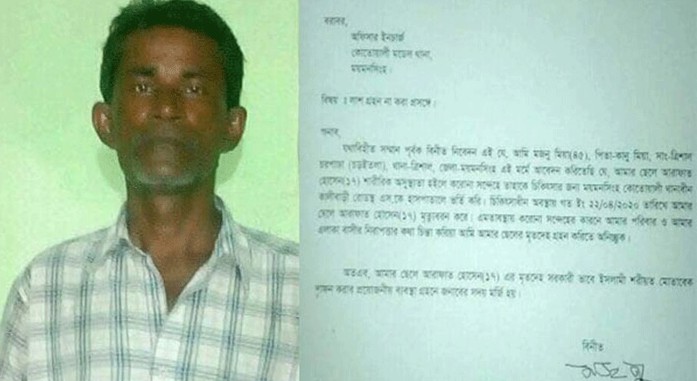 বরাবর,
অফিসার ইনচার্জ
কোতোয়ালী মডেল থানা,
ময়মনসিংহ।
বিষয় : লাশ গ্রহন না করা প্রসঙ্গে।
জনাব,
যথাবিহীত সম্মান পূর্বক বিনীত নিবেদন এই যে, আমি মজনু মিয়া(৪৫), পিতা-কানু মিয়া, সাং-ত্রিশাল
চরপাড়া (চড়ইতলা), থানা-ত্রিশাল, জেলা-ময়মনসিংহ এই মর্মে আবেদন করিতেছি যে, আমার ছেলে আরাফাত
হোসেন(১৭) শারীরিক অসুস্থতা হইলে করোনা সন্দেহে তাহাকে চিকিৎসার জন্য ময়মনসিংহ কোতোয়ালী থানাধীন
কালীবাড়ী রোডস্থ এস,কে হাসপাতালে ভর্তি করি। চিকিৎসাধীন অবস্থায় গত ইং ২২/০৪/২০২০ তারিখে আমার
ছেলে আরাফাত হোসেন(১৭) মৃত্যুবরন করে। এমতাবস্থায় করোনা সন্দেহের কারনে আমার পরিবার ও আমার
এলাকা বাসীর নিরাপত্তার কথা চিন্তা করিয়া আমি আমার ছেলের মৃতদেহ গ্রহন করিতে অনিচ্ছুক।
অতএব, আমার ছেলে আরাফাত হোসেন(১৭) এর মৃতদেহ সরকারী ভাবে ইসলামী শরীয়ত মোতাবেক
দাফন করার প্রয়োজনীয় ব্যবস্থা গ্রহনে জনাবের সদয় মর্জি হয়।
বিনীত